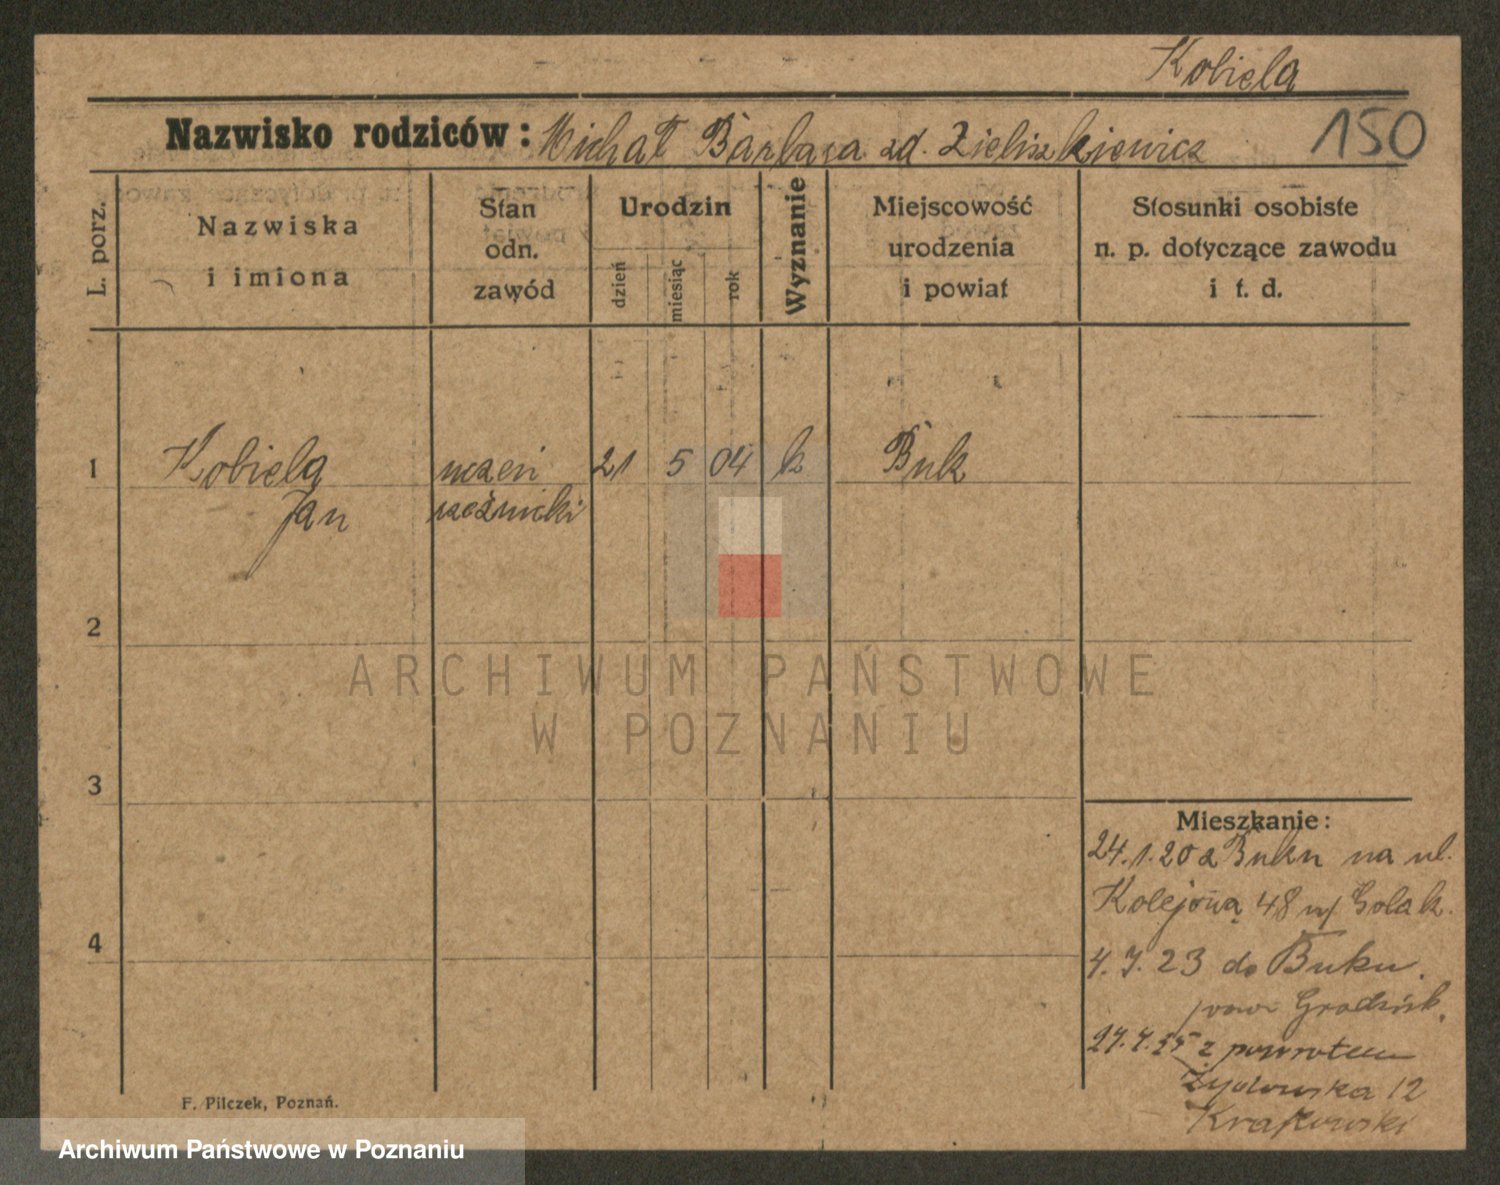 Kobiela
Nazwisko rodziców: Michał Barbara zd. Zieliszkiewicz 150
L. porz.
Nazwiska
i imiona
Stan
odn.
zawód
Urodzin
dzień
miesiąc
rok
Wyznanie
Miejscowość
urodzenia
i powiat
Stosunki osobiste
n. p. dotyczące zawodu
i t. d.
1 Kobiela uczeń 21 5 04 k Buk
Jan rzeźnicki
2
3
4
Mieszkanie:
24.1.20 z Buku na ul.
Kolejową 48 Golak
4.7.23 do Buku.
pow. Grodzisk.
z powrotem
Żydowska 12
Krakowski
F. Pilczek, Poznań.
ARCHIWUM PAŃSTWOWE
W POZNANIU
Archiwum Państwowe w Poznaniu